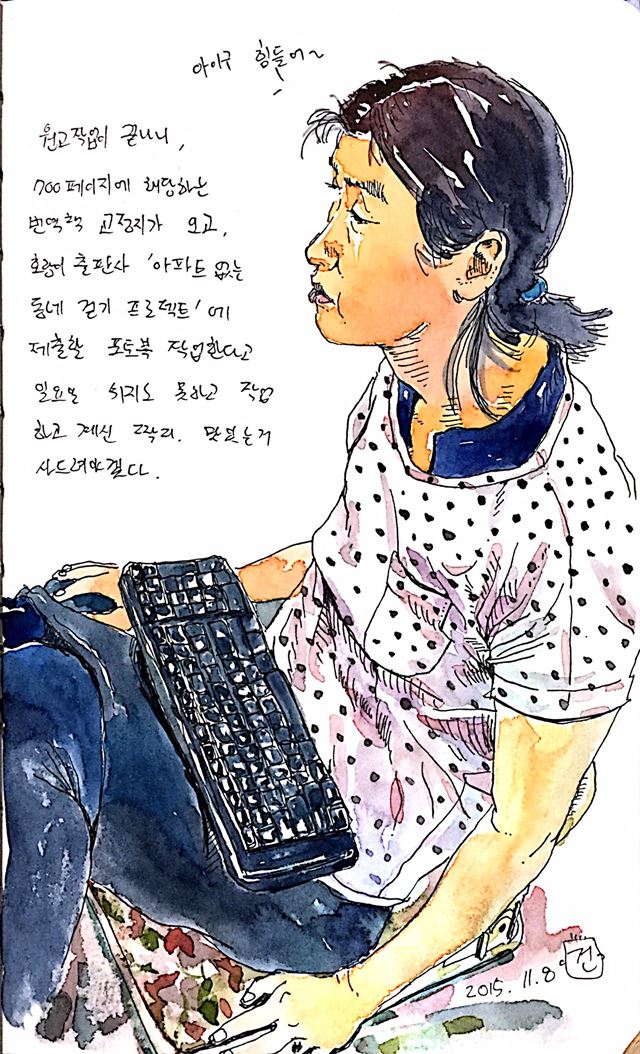 아이구 힘들어~
원고작업이 끝나니,
700페이지에 해당하는
번역책 교정지가 오고,
호랑이 출판사 '아파트 없는
동네 걷기 프로젝트'에
제출할 포토북 작업한다고
일요일 쉬지도 못하고 작업
하고 계신 모락리. 맛있는거
사드려야겠다.
2015. 11. 8
건